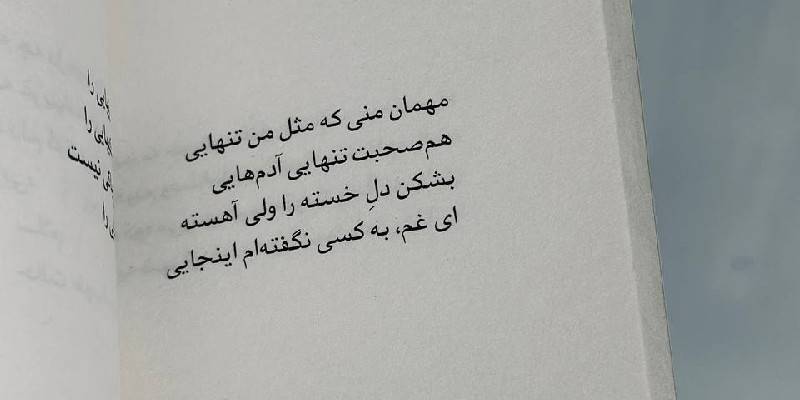 مهمان منی که مثل من تنهایی
هم‌صحبت تنهایی آدم‌هایی
بشکن دلِ خسته را ولی آهسته
ای غم، به کسی نگفته‌ام اینجایی
را
را
نیست
را